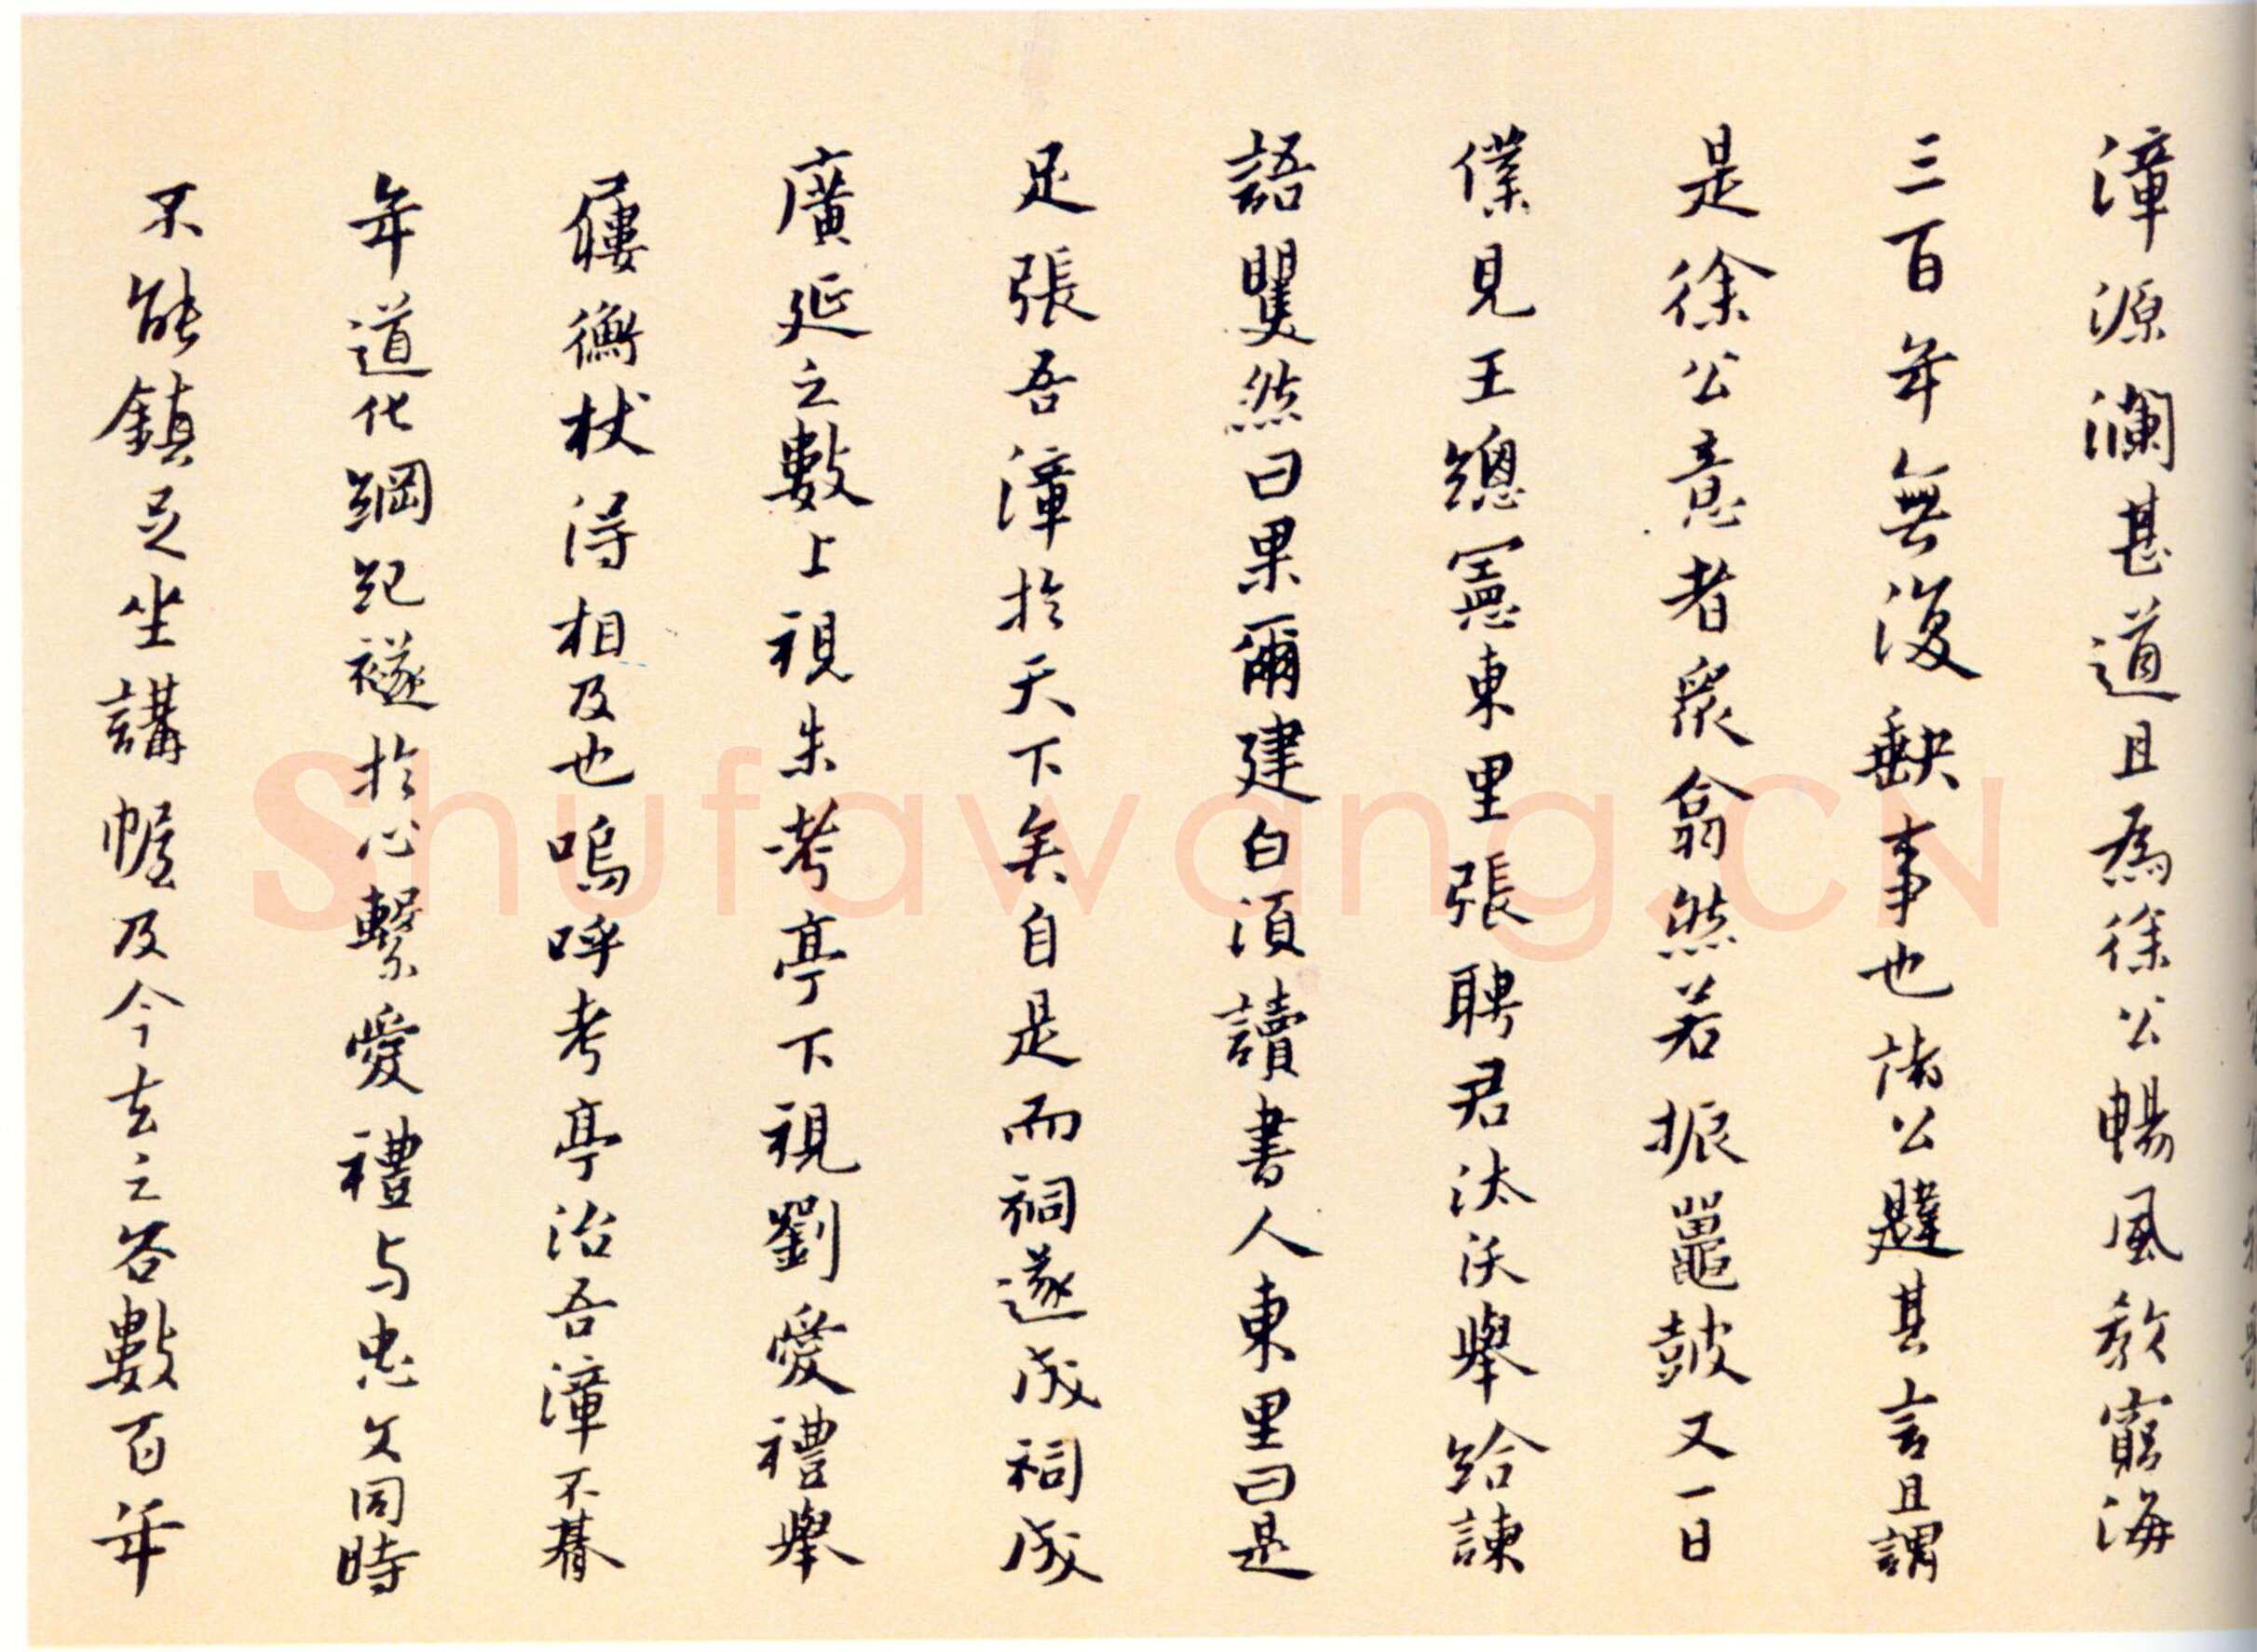 漳源瀾甚道且為徐公暢風教窮海
三百年無復缺事也諸公韙其言且謂
是徐公意者衆翕然若振鼉鼓又一日
僕見王總憲東里張聘君汰沃舉給諫
語瞿然曰果爾建白須讀書人東里曰是
足張吾漳於天下矣自是而祠遂成祠成
廣延之數上視朱考亭下視劉愛禮舉
屨衡杖得相及也嗚呼考亭治吾漳不朞
年道化綱紀襚於心繫愛禮与忠文同時
不能鎮足坐講幄及今去之各數百年
Shufawang.CN